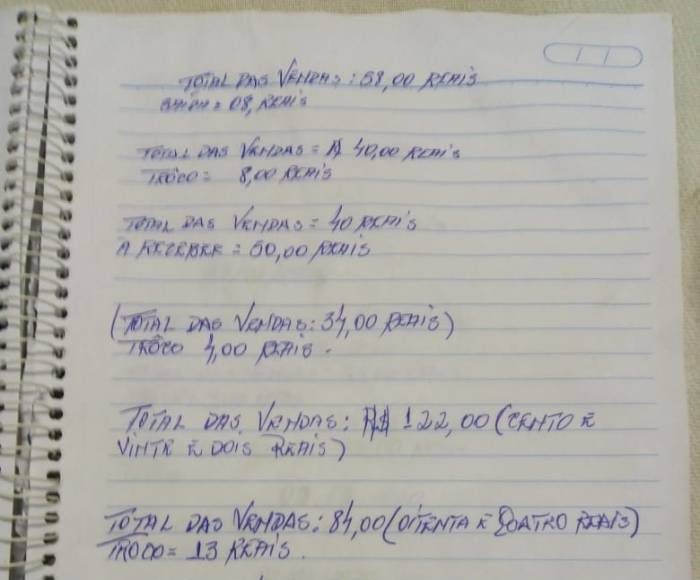 TOTAL DAS VENDAS: 58,00 REAIS
= 08, REAIS
TOTAL DAS VENDAS = R$ 40,00 REAIS
TRÔCO = 8,00 REAIS
TOTAL DAS VENDAS = 40 REAIS
A RECEBER = 50,00 REAIS
(TOTAL DAS VENDAS: 34,00 REAIS)
TRÔCO 4,00 REAIS.
TOTAL DAS VENDAS: R$ 122,00 (CENTO E
VINTE E DOIS REAIS)
TOTAL DAS VENDAS: 84,00 (OITENTA E QUATRO REAIS)
TROCO = 13 REAIS.